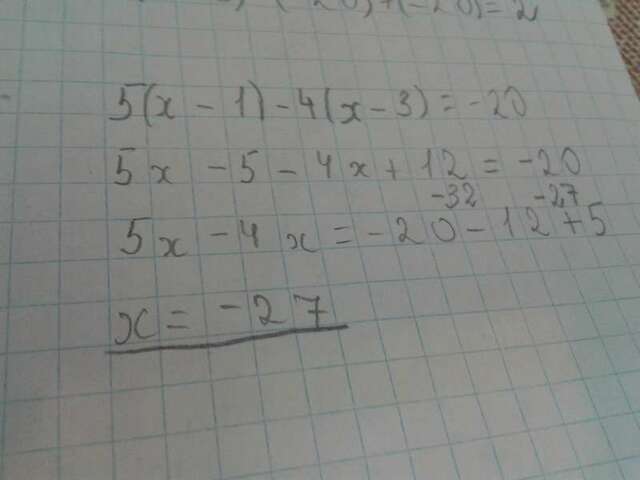 20) + (-20) = 2
5(x - 1) - 4(x - 3) = -20
5x - 5 - 4x + 12 = -20
-32 -27
5x - 4x = -20 - 12 + 5
x = -27